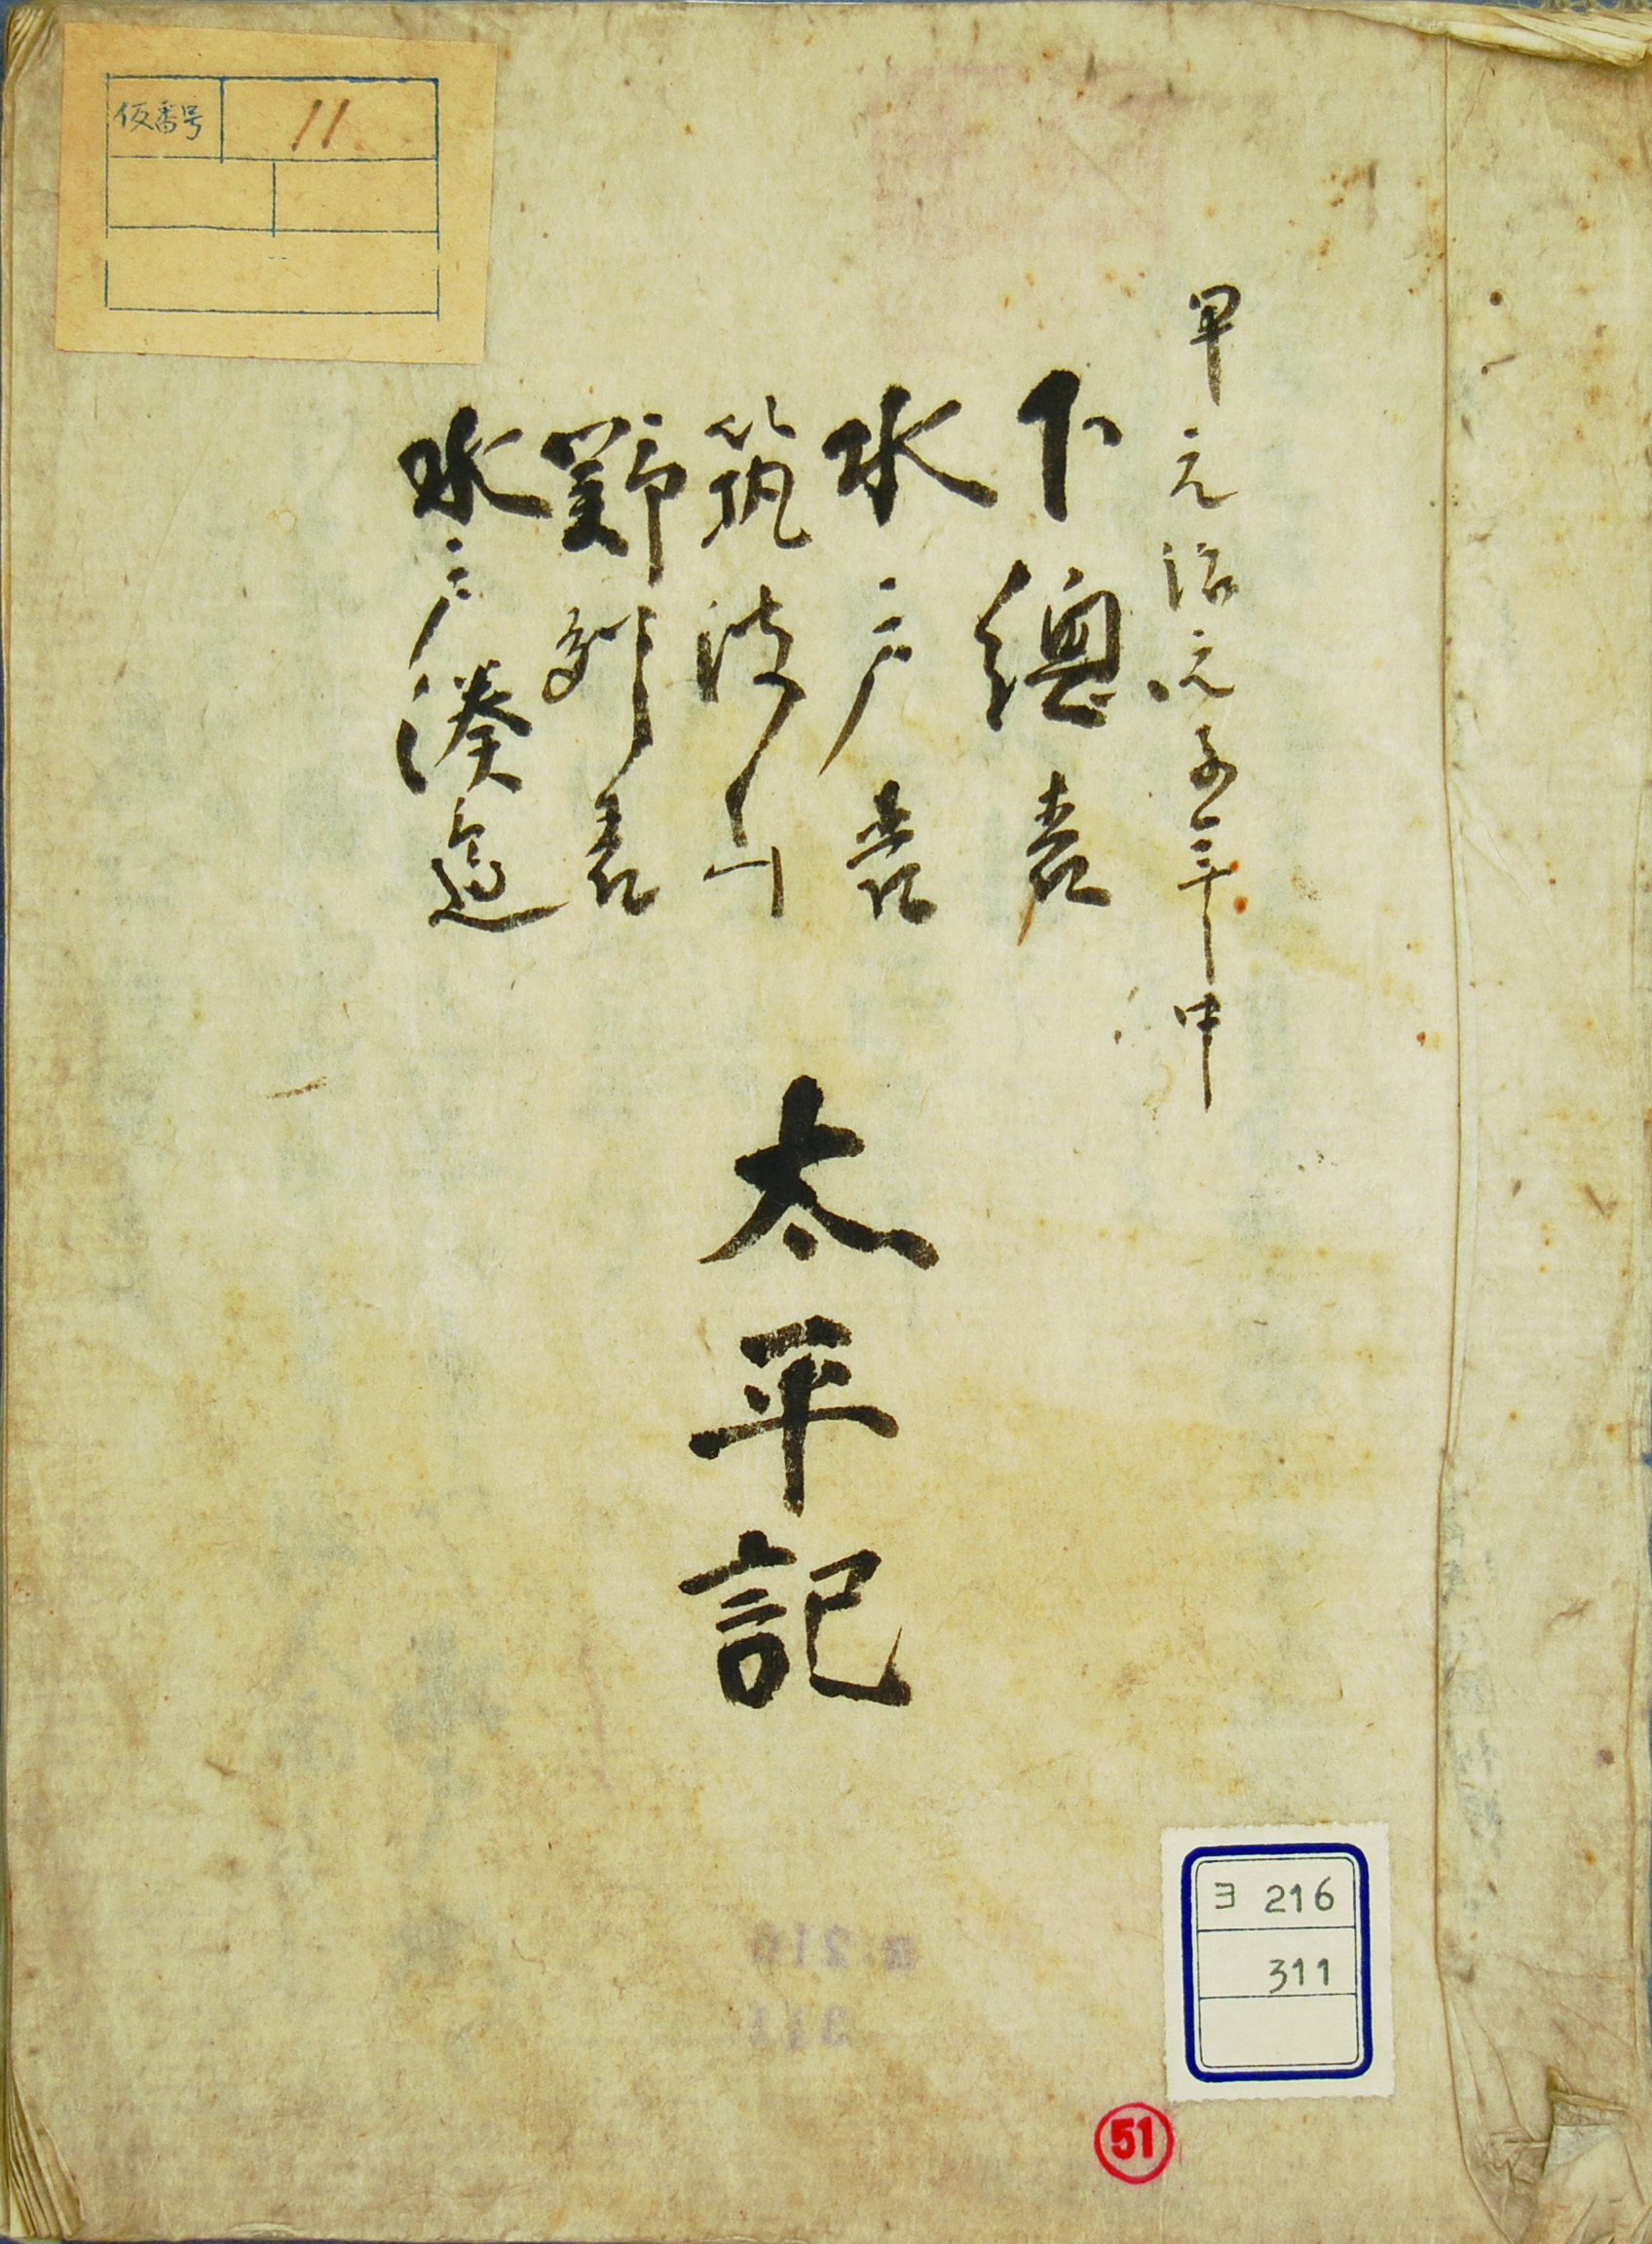 仮番号 11
甲元治元子年中
下總表
水戸表
筑波山
野州表
水戸湊邊
太平記
ヨ 216
311
51